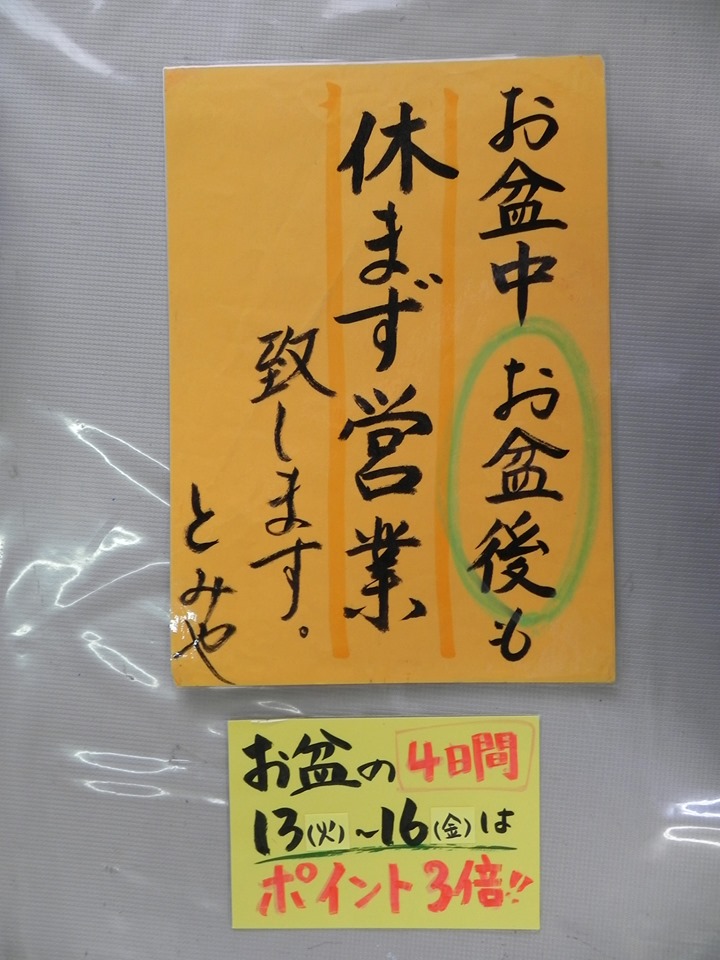 お盆中 お盆後も
休まず営業
致します。
とみや
お盆の4日間
13(火)~16(金)は
ポイント3倍!!